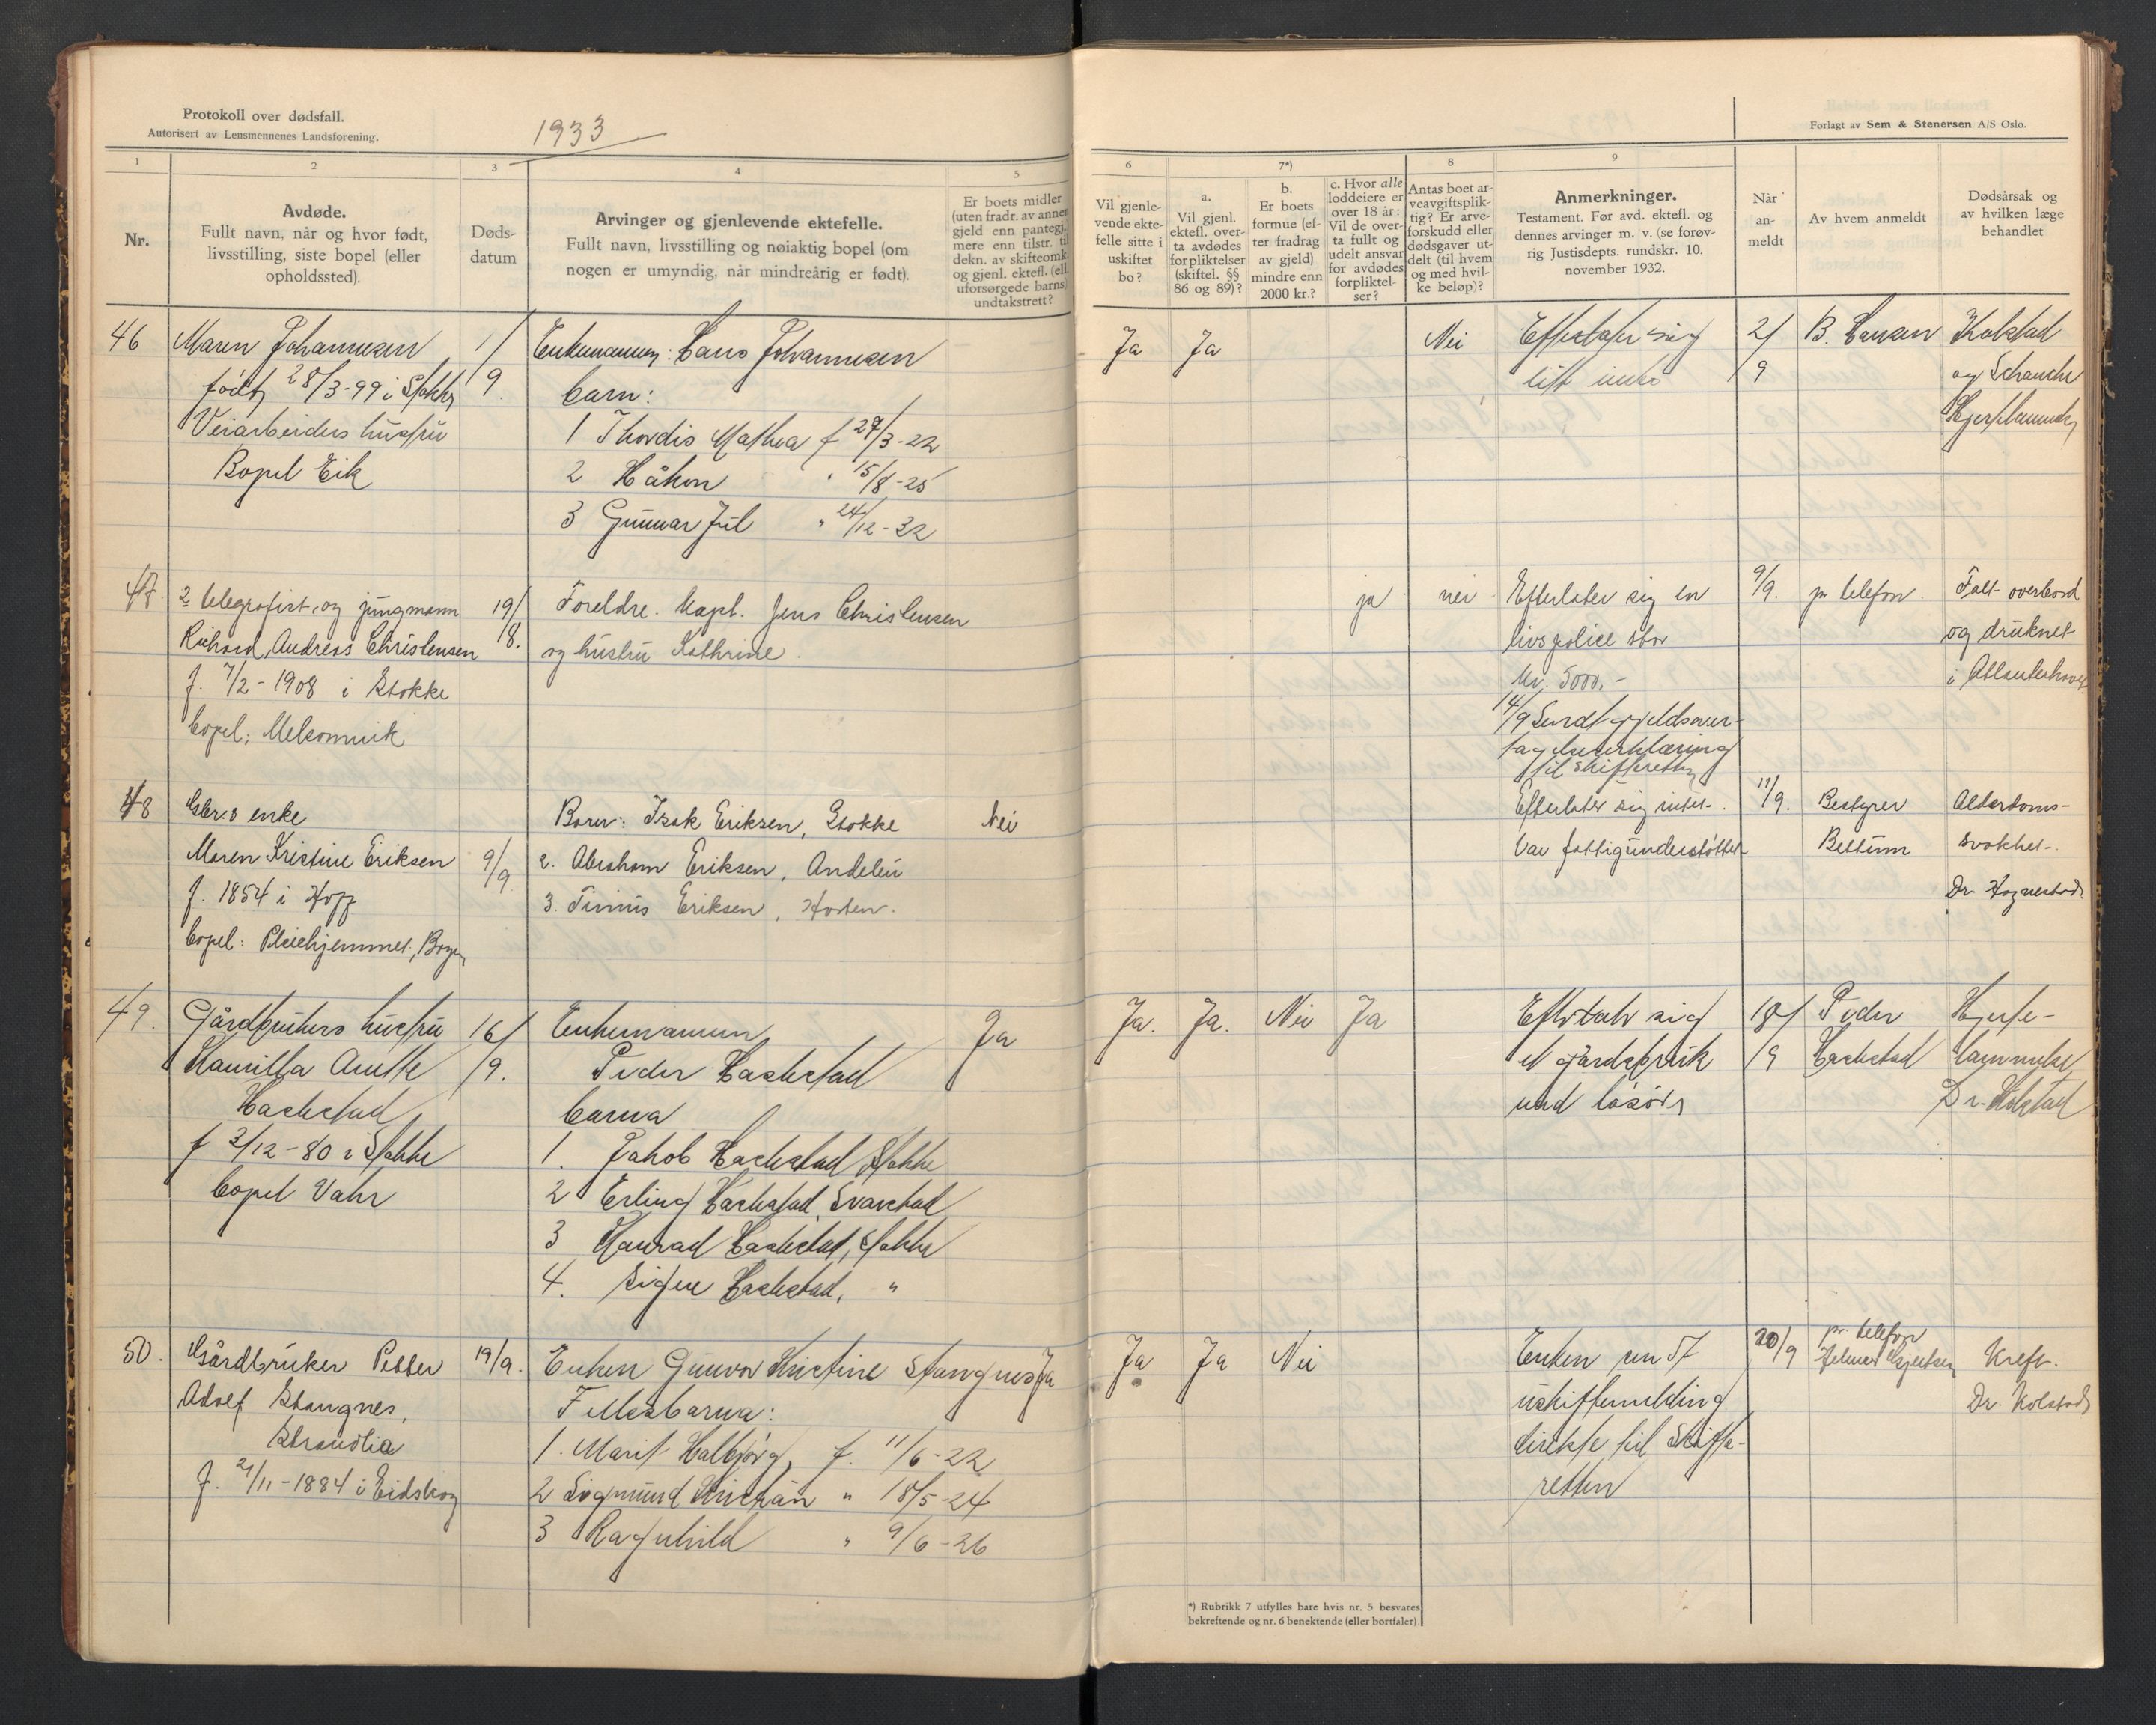 Protokoll over dødsfall.
Autorisert av Lensmennenes Landsforening.
1933
Forlagt av Sem & Stenersen A/S Oslo.
1
2
3
4
5
6
7*)
8
9
Nr.
Avdøde.
Fullt navn, når og hvor født,
livsstilling, siste bopel (eller
opholdssted).
Døds-
datum
Arvinger og gjenlevende ektefelle.
Fullt navn, livsstilling og nøiaktig bopel (om
nogen er umyndig, når mindreårig er født).
Er boets midler
(uten fradr. av annen
gjeld enn pantegj.)
mere enn tilstr. til
dekn. av skifteomk.
og gjenl. ektefl. (ell.
uforsørgede barns)
undtakstrett?
Vil gjenle-
vende ekte-
felle sitte i
uskiftet
bo?
a.
Vil gjenl.
ektefl. over-
ta avdødes
forpliktelser
(skiftel. §§
86 og 89)?
b.
Er boets
formue (ef-
ter fradrag
av gjeld)
mindre enn
2000 kr.?
c. Hvor alle
loddeiere er
over 18 år:
Vil de over-
ta fullt og
udelt ansvar
for avdødes
forpliktel-
ser?
Antas boet ar-
veavgiftsplik-
tig? Er arve-
forskudd eller
dødsgaver ut-
delt (til hvem
og med hvil-
ke beløp)?
Anmerkninger.
Testament. Før avd. ektefl. og
dennes arvinger m. v. (se forøv-
rig Justisdepts. rundskr. 10.
november 1932.
Når
an-
meldt
Av hvem anmeldt
Dødsårsak og
av hvilken læge
behandlet
46
Maren Johannesen
født 28/3-99 i Stokke
Veiarbeiders hustru
Bopel Eik
1/9.
Enkemannen: Hans Johannesen
barn:
1 Thordis Mathea f 29/3-22
2 Håkon " 15/8-25
3 Gunnar Jul " 24/12-32
Ja
Ja
Nei
Efterlater sig
litt innbo
2/9
B. Hansen
Kolstad
og Schanche
Hjertelammelse
47.
2 telegrafist og jungmann
Richard Andreas Christensen
f. 7/2-1908 i Stokke
bopel: Melsomvik
19/8.
Foreldre. Kapt. Jens Christensen
og hustru Kathrine.
ja
nei
Efterlater sig en
livspolice stor
kr. 5000.-
14/9 Sendt gjeldsover-
tagelseserklæring
til skifteretten
9/9.
pr telefon.
Falt overbord
og druknet
i Atlanterhavet
48
Gbr.s enke
Maren Kristine Eriksen
f. 1854 i Hoff
bopel: Pleiehjemmet, Bogen
9/9
Barn: Isak Eriksen, Stokke
2. Abraham Eriksen, Andebu
3. Tinius Eriksen, Horten.
Nei
Efterlater sig intet.
Var fattigunderstøttet
11/9.
Bestyrer
Bettum
Alderdoms-
svakhet.
Dr. Hognestad
49.
Gårdbrukers hustru
Kamilla Anette
Haslestad
f 3/12-80 i Stokke
bopel Valn
16/9.
Enkemannen
Peder Haslestad
barna
1. Jakob Haslestad Stokke
2 Erling Haslestad, Svarstad
3 Konrad Haslestad, Stokke
4. Signe Haslestad, "
Ja
Ja.
Ja.
Nei
Ja
Efterlater sig
et gårdsbruk
med løsøre
18/9
Peder
Haslestad
Hjerte-
lammelse
Dr. Kolstad
50.
Gårdbruker Petter
Adolf Stangnes,
Strandlia
f. 21/11-1884 i Eidskog
19/9.
Enken Gunvor Kristine Stangnes
Fellesbarna:
1. Marit Halbjørg, f. 11/6-22
2 Sigmund Kristian " 18/5-24
3 Ragnhild " 9/6-26
Ja
Ja
Ja
Nei
Enken sendt
uskiftemelding
direkte til Skifte-
retten
20/9
pr. telefon
Kreft.
Dr. Kolstad
*) Rubrikk 7 utfylles bare hvis nr. 5 besvares
bekreftende og nr. 6 benektende (eller bortfaler).